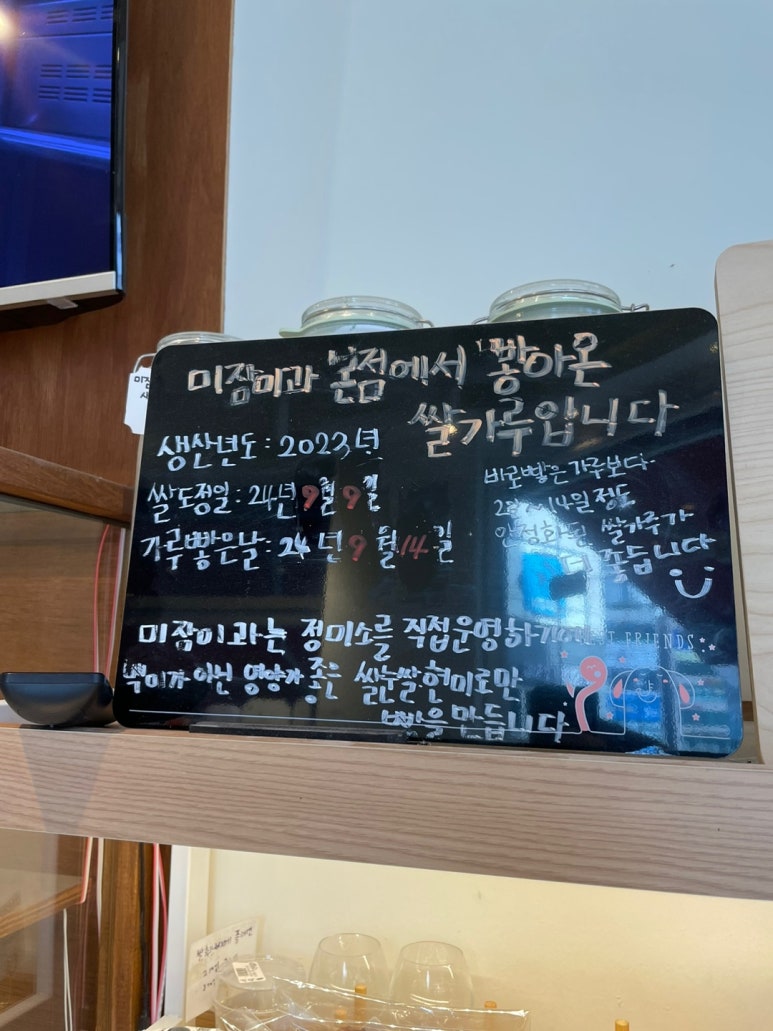 미잠미과 본점에서 빻아온
쌀가루입니다
생산년도: 2023년
쌀도정일: 24년 9월 9일
가루빻은날: 24년 9월 14일
바로빻은가루보다
14일정도
안정화된 쌀가루가
더 좋습니다
미잠미과는 정미소를 직접운영하기에
FRIENDS
백미가 아닌 영양가 좋은 쌀눈쌀현미로만
빵을만듭니다